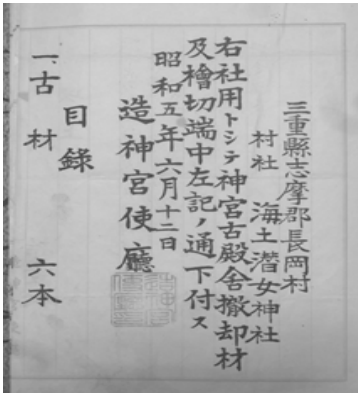 三重縣志摩郡長岡村
村社 海士潜女神社
右社用トシテ神宮古殿舎撤却材
及檜切端中左記ノ通下付ス
昭和五年六月十二日
造神宮使廳
目錄
一、古材 六本